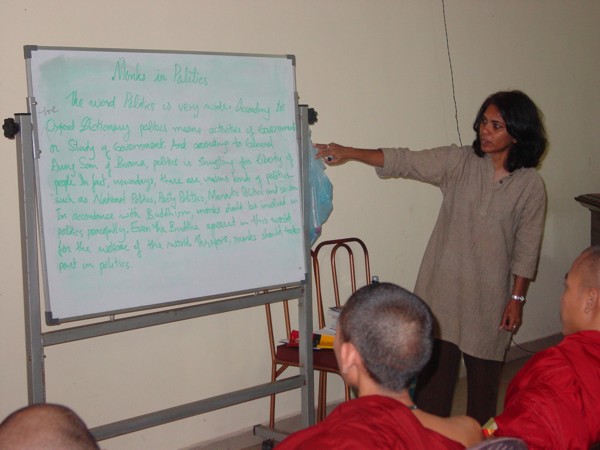 Monks in Politics
The word Politics is very wide. According to
the
Oxford Dictionary politics means activities of Government
or Study of Government. And according to General
Aung San of Burma, politics is Struggling for liberty of
people. In fact, nowadays, there are various kinds of politics
such as National Politics, Party Politics, Politics and so on.
In accordance with Buddhism, monks should be involved in
politics peacefully. Even the Buddha appeared in this world
for the welfare of the world. Therefore, monks should take
part in politics.